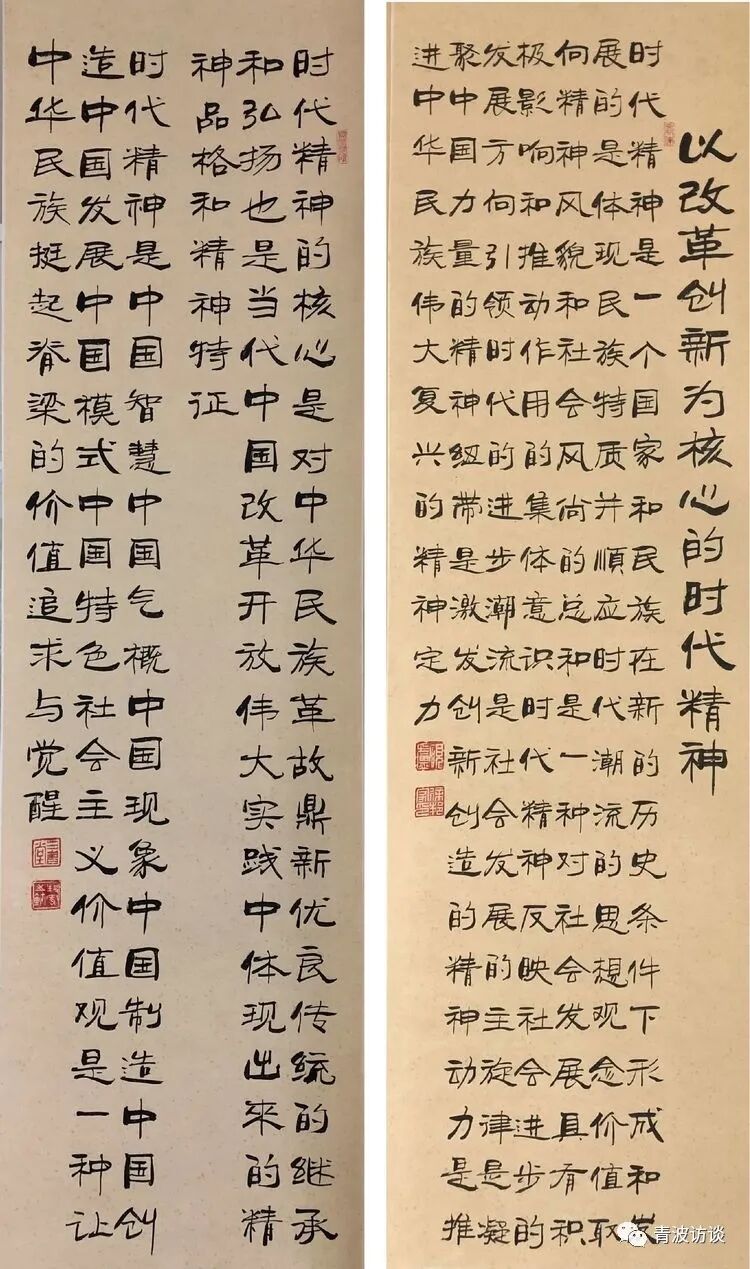 以改革创新为核心的时代精神
时代精神是一个国家和民族在新的历史条件下形成和发
展的是体现民族特质并顺应时代潮流的思想观念价值取
向精神风貌和社会风尚的总和是一种对社会发展具有积
极影响和推动作用的集体意识时代精神反映社会进步的
发展方向引领时代的进步潮流是社会发展的主旋律是凝
聚中国力量的精神纽带是激发创新创造的精神动力是推
进中华民族伟大复兴的精神定力
时代精神的核心是对中华民族革故鼎新优良传统的继承
和弘扬也是当代中国改革开放伟大实践中体现出来的精
神品格和精神特征
时代精神是中国智慧中国气概中国现象中国制造中国创
造中国发展中国模式中国特色社会主义价值观是一种让
中华民族挺起脊梁的价值追求与觉醒
青波访谈